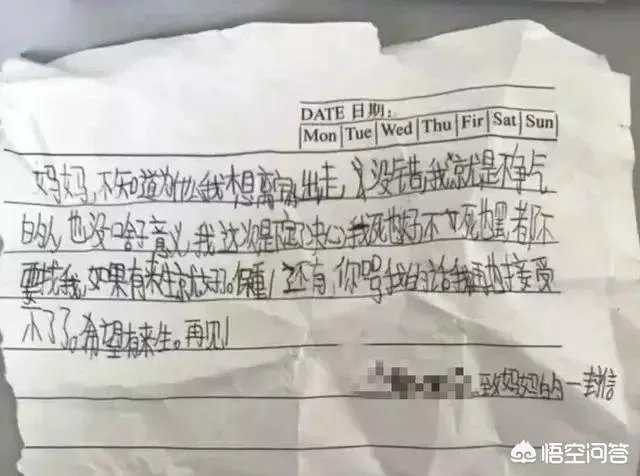 DATE 日期:
Mon Tue Wed Thu Fir Sat Sun
妈妈,不知道为什么我想离家出走,没错,我就是不争气
的人也没啥子意义,我这次是下定了决心我死也好不死也罢都不
要找我,如果有来生就好了。保重!还有,你骂我的话我再也接受
不了了。希望有来生。再见!
致妈妈的一封信
悟空问答